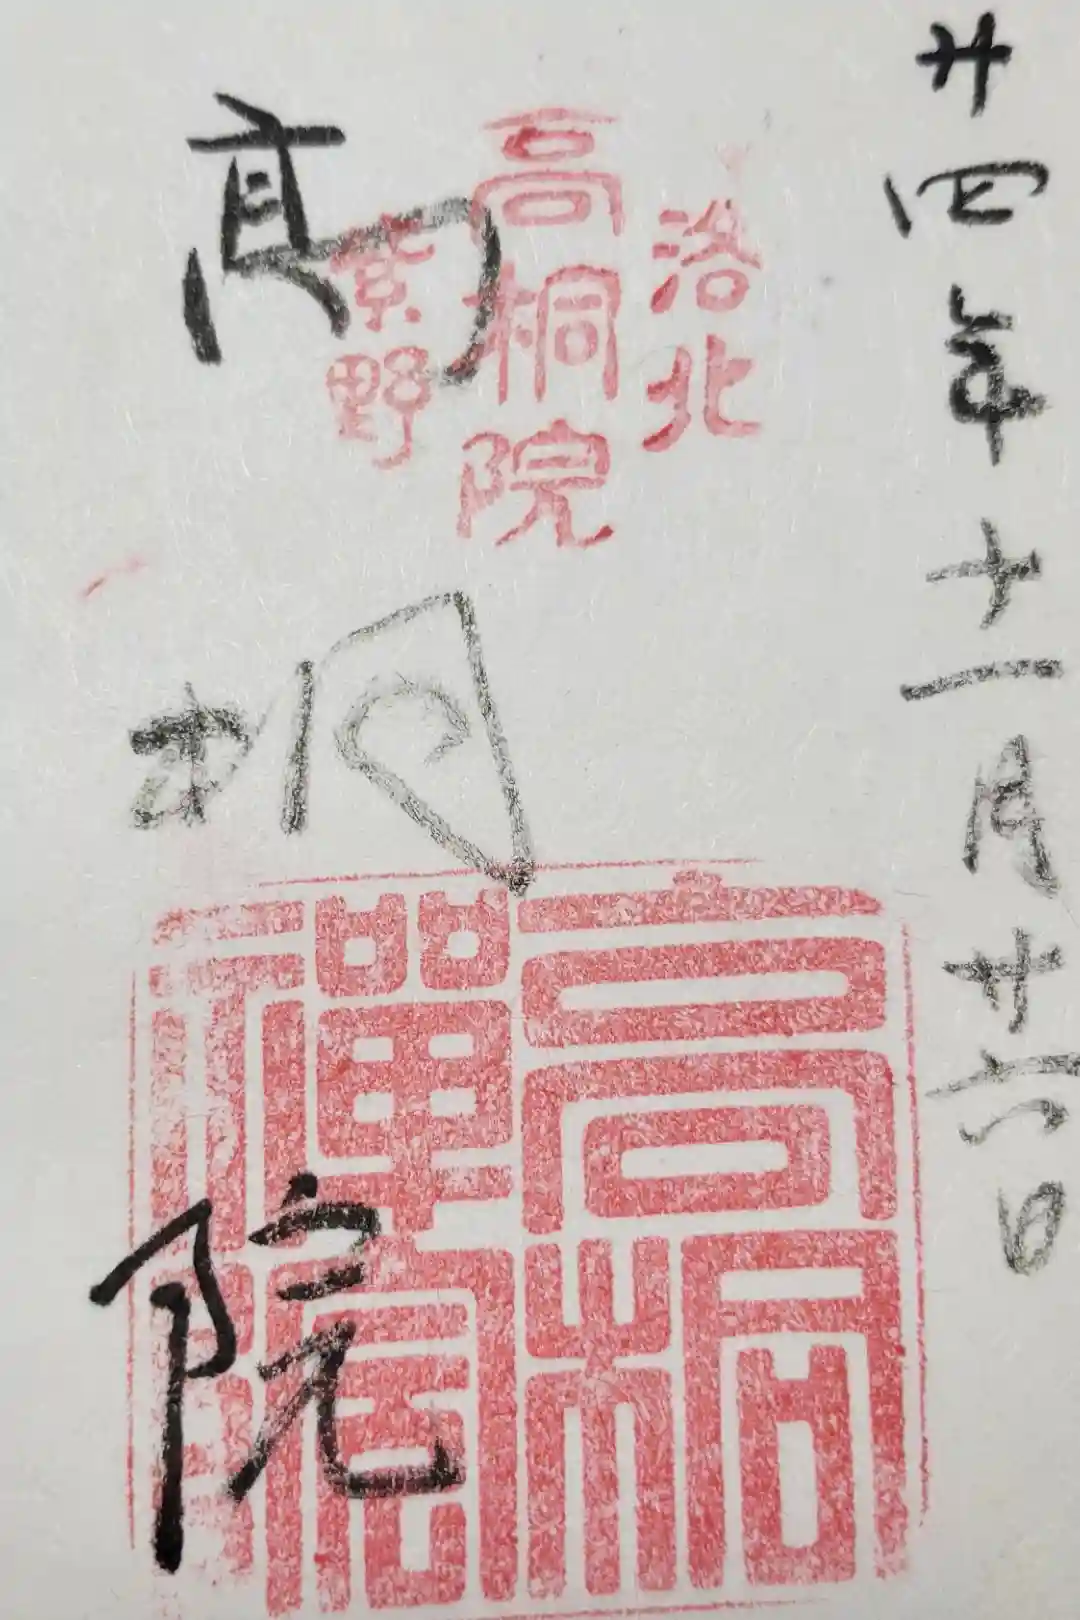 廿四年十一月廿六日
洛北
高桐院
紫野
高桐院
高桐
禪院